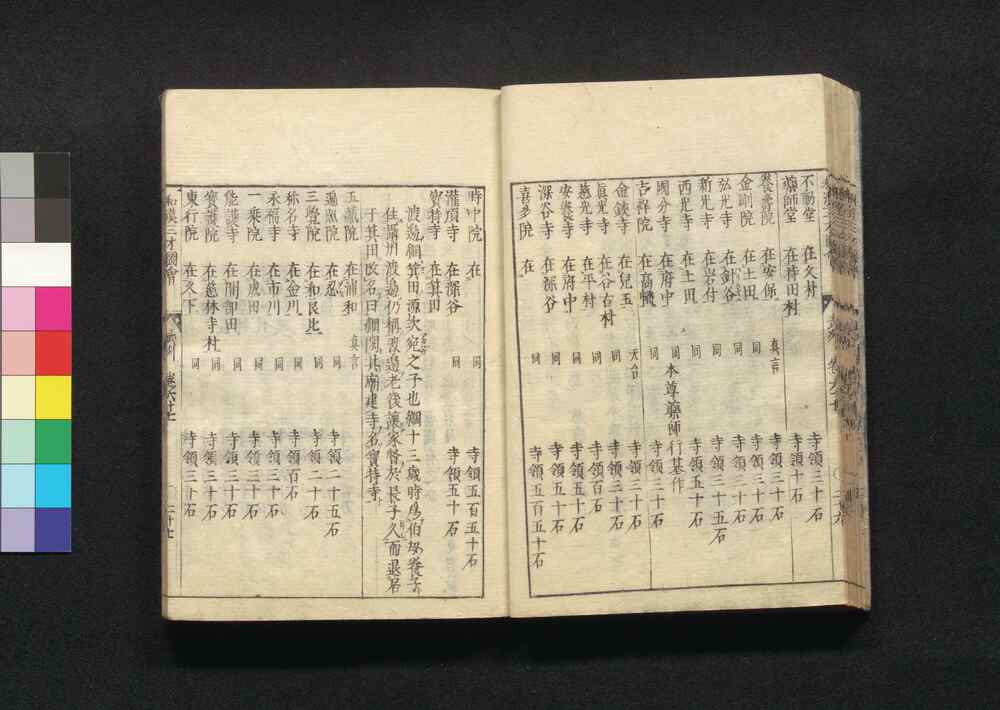 不動堂 在久村 寺領三十石
藥師堂 在持田村 寺領十石
養壽院 在安保 真言 寺領三十石
金剛院 在土田 同 寺領三十石
弘光寺 在針谷 同 寺領三十五石
新光寺 在岩付 同 寺領三十石
西光寺 在土田 同 寺領五十石
國分寺 在府中 同 本尊藥師行基作
吉祥院 在高機 同 寺領三十石
金鑚寺 在兒玉 天台 寺領三十石
眞光寺 在谷古村 同 寺領三十石
慈光寺 在平村 同 寺領百石
安養寺 在府中 同 寺領五十石
深谷寺 在深谷 同 寺領五十石
喜多院 在 寺領五百五十石
時中院 在 同 寺領五百五十石
灌頂寺 在深谷 同 寺領五十石
寳持寺 在箕田
渡邉綱箕田源次宛之子也綱十三歳時爲伯母養子
住攝州渡邉仍稱渡邉老後讓家督於長子久而退居
于箕田改名曰綱閑其廟建寺名寳持寺
玉藏院 在浦和 真言
遍照院 在忍 同 寺領二十五石
三覺院 在和長比 寺領二十石
称名寺 在金川 同 寺領百石
永福寺 在市川 同 寺領三十石
一乗院 在成田 同 寺領三十石
能護寺 在間部田 同 寺領三十石
寳護院 在慈林寺村 同 寺領三十石
東行院 在久下 同 寺領三十石
和漢三才圖會 武州 卷之六十七 二十七